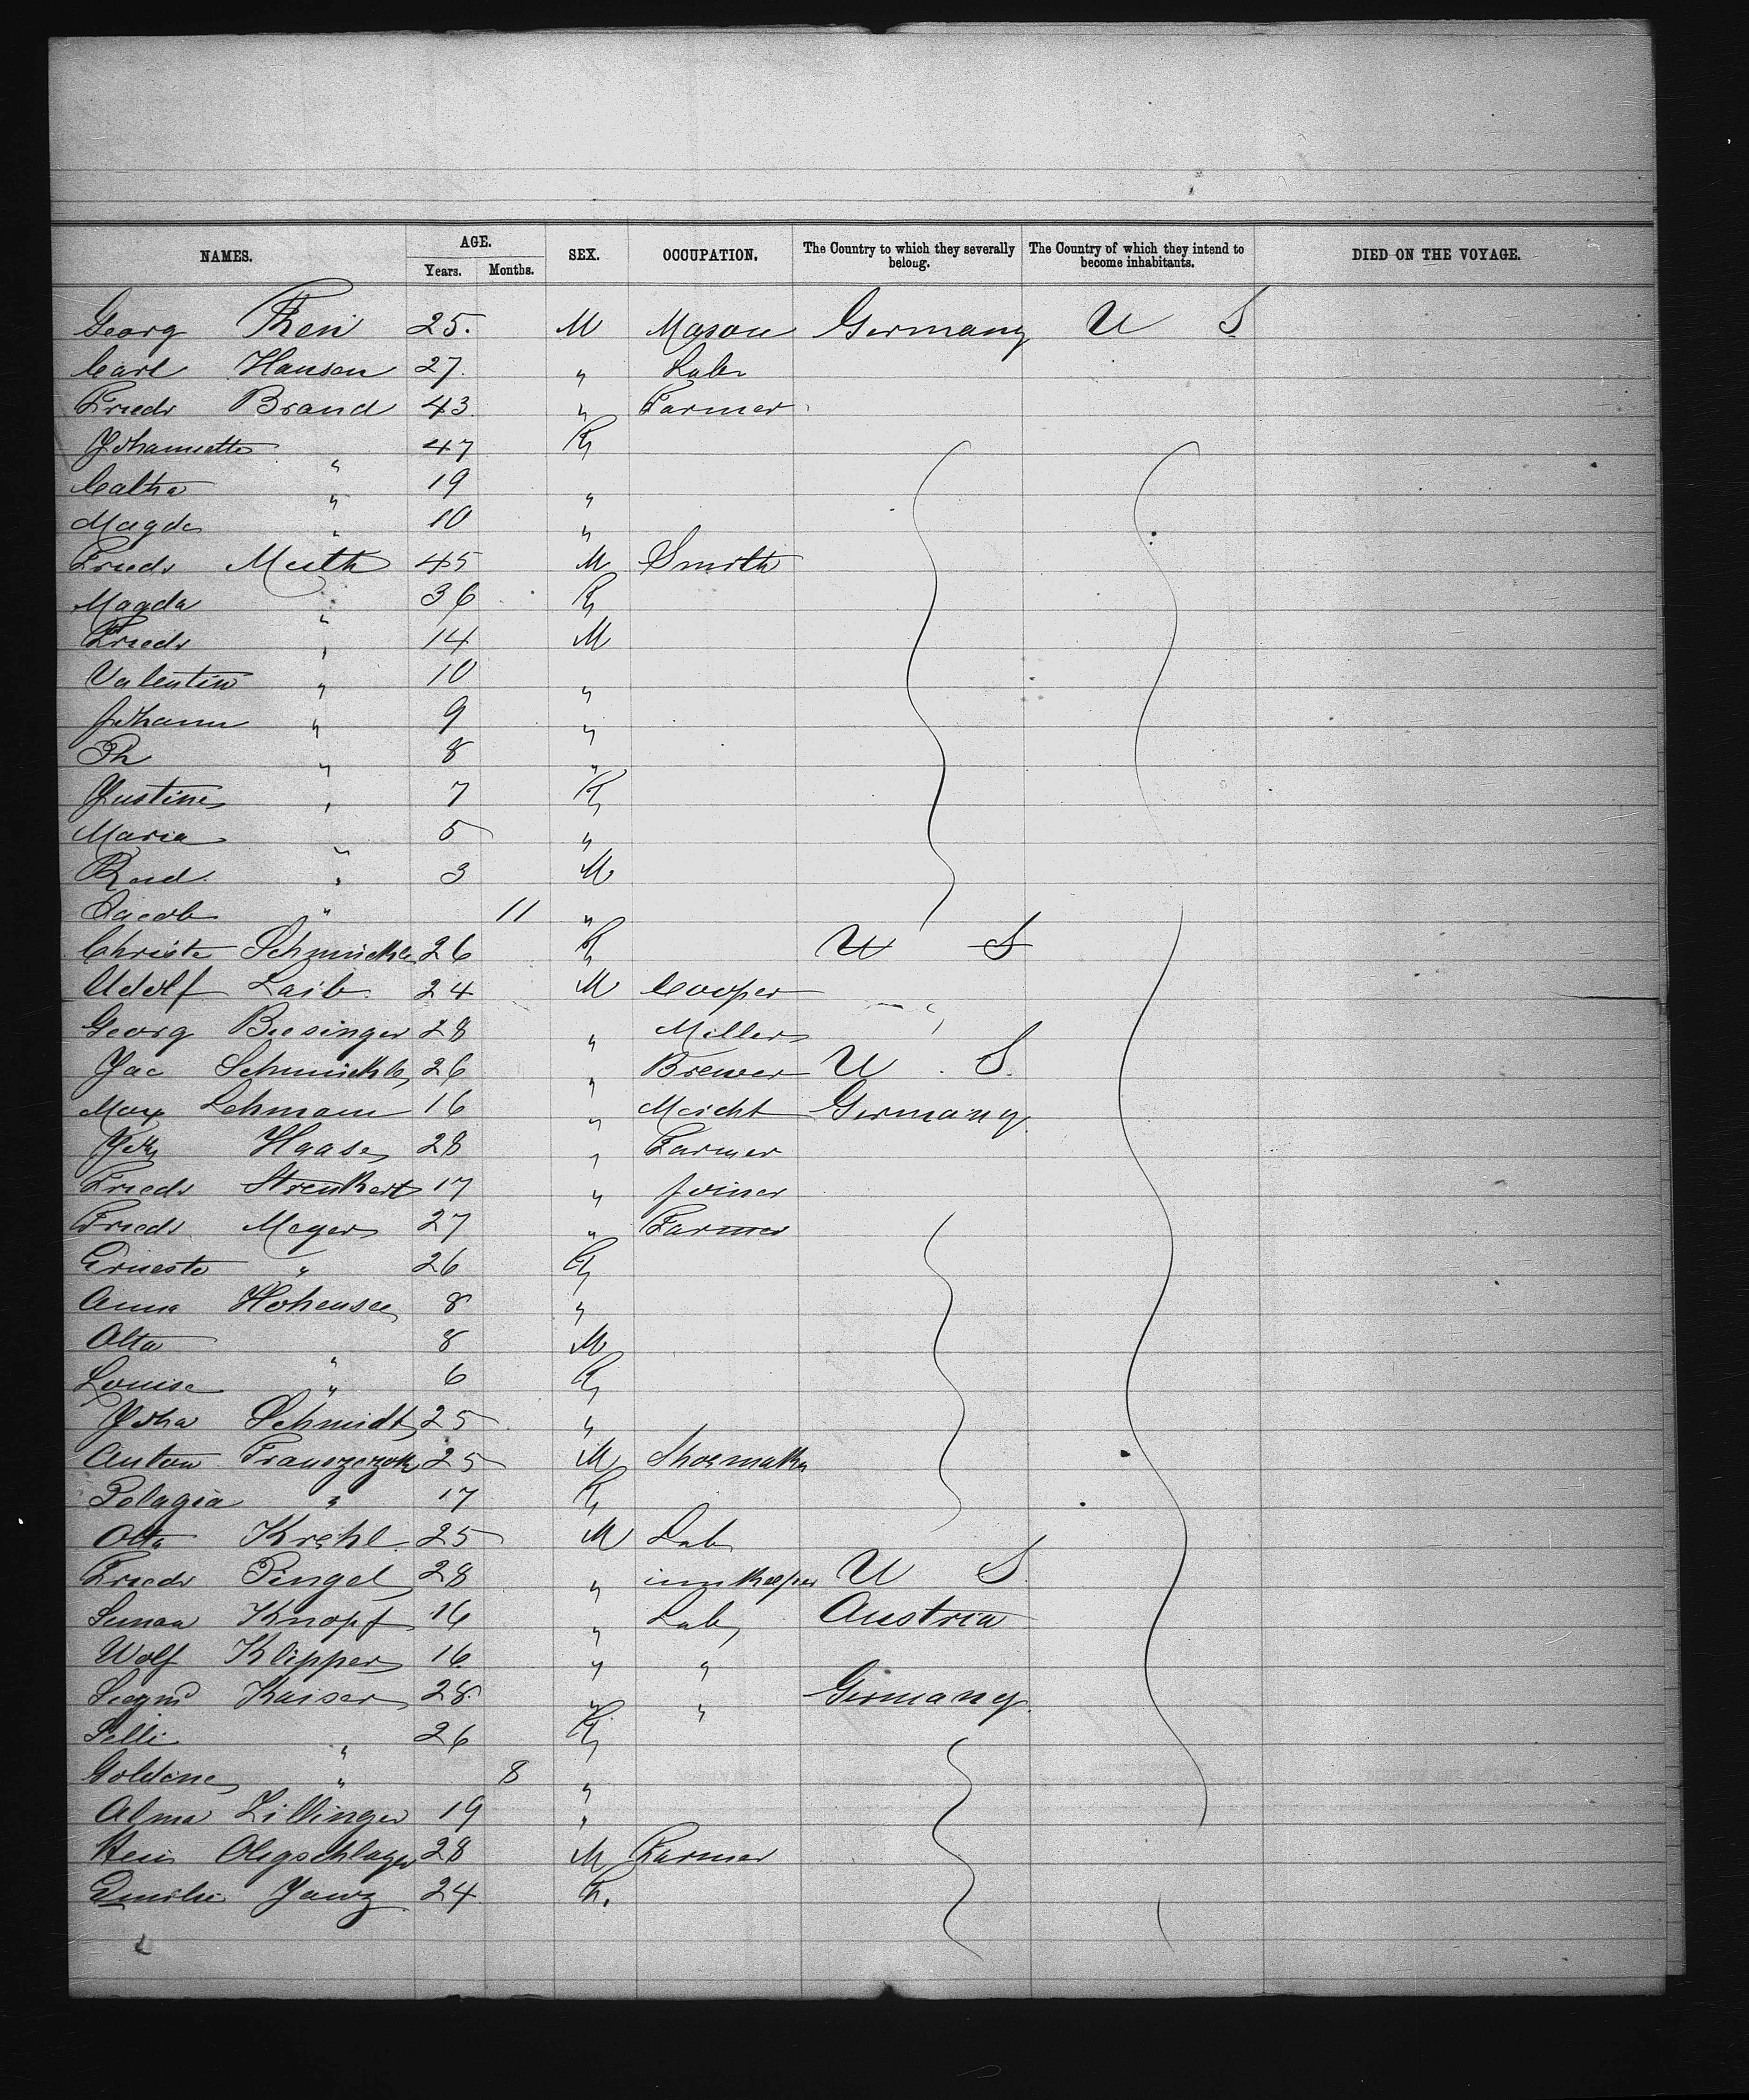 NAMES. AGE. SEX. OCCUPATION. The Country to which they severally belong. The Country of which they intend to become inhabitants. DIED ON THE VOYAGE.
Years. Months.
Georg 25. M Mason Germany U S
Carl Hansen 27. " Labr
Friedr Brand 43 " Farmer
Johannette " 47 F
Catha " 19 "
Magda " 10 "
Friedr Muth 45 M Smith
Magda " 36 F
Friedr " 14 M
Valentin " 10 "
Johann " 9 "
Ph " 8 "
Justine " 7 F
Maria " 5 "
" 3 M
Jacob " 11 "
Christe Schmickle 26 F U S
Adolf Laib 24 M Cooper
Georg Biesinger 28 " Miller
Jac Schmickle 26 " Brewer U S
Max Lehmann 16 " Mercht Germany
Haase 28 " Farmer
Friedr Strenkert 17 " Joiner
Friedr Meyer 27 " Farmer
Erneste " 26 F
Anna Hohensee 8 "
Otto " 8 M
Louise " 6 F
Joha Schmidt 25 "
Anton Franszczok 25 M Shoemaker
Pelagia " 17 F
Otto Krehl 25 M Lab
Friedr Pingel 28 " innkeeper U S
Knopf 16 " Lab Austria
Wolf Klipper 16 " "
Siegmd Kaiser 28 " " Germany
Selli " 26 F
Goldine " 8 "
Alma Zillinger 19 "
Hein Olegschlager 28 M Farmer
Emilie Janz 24 F.